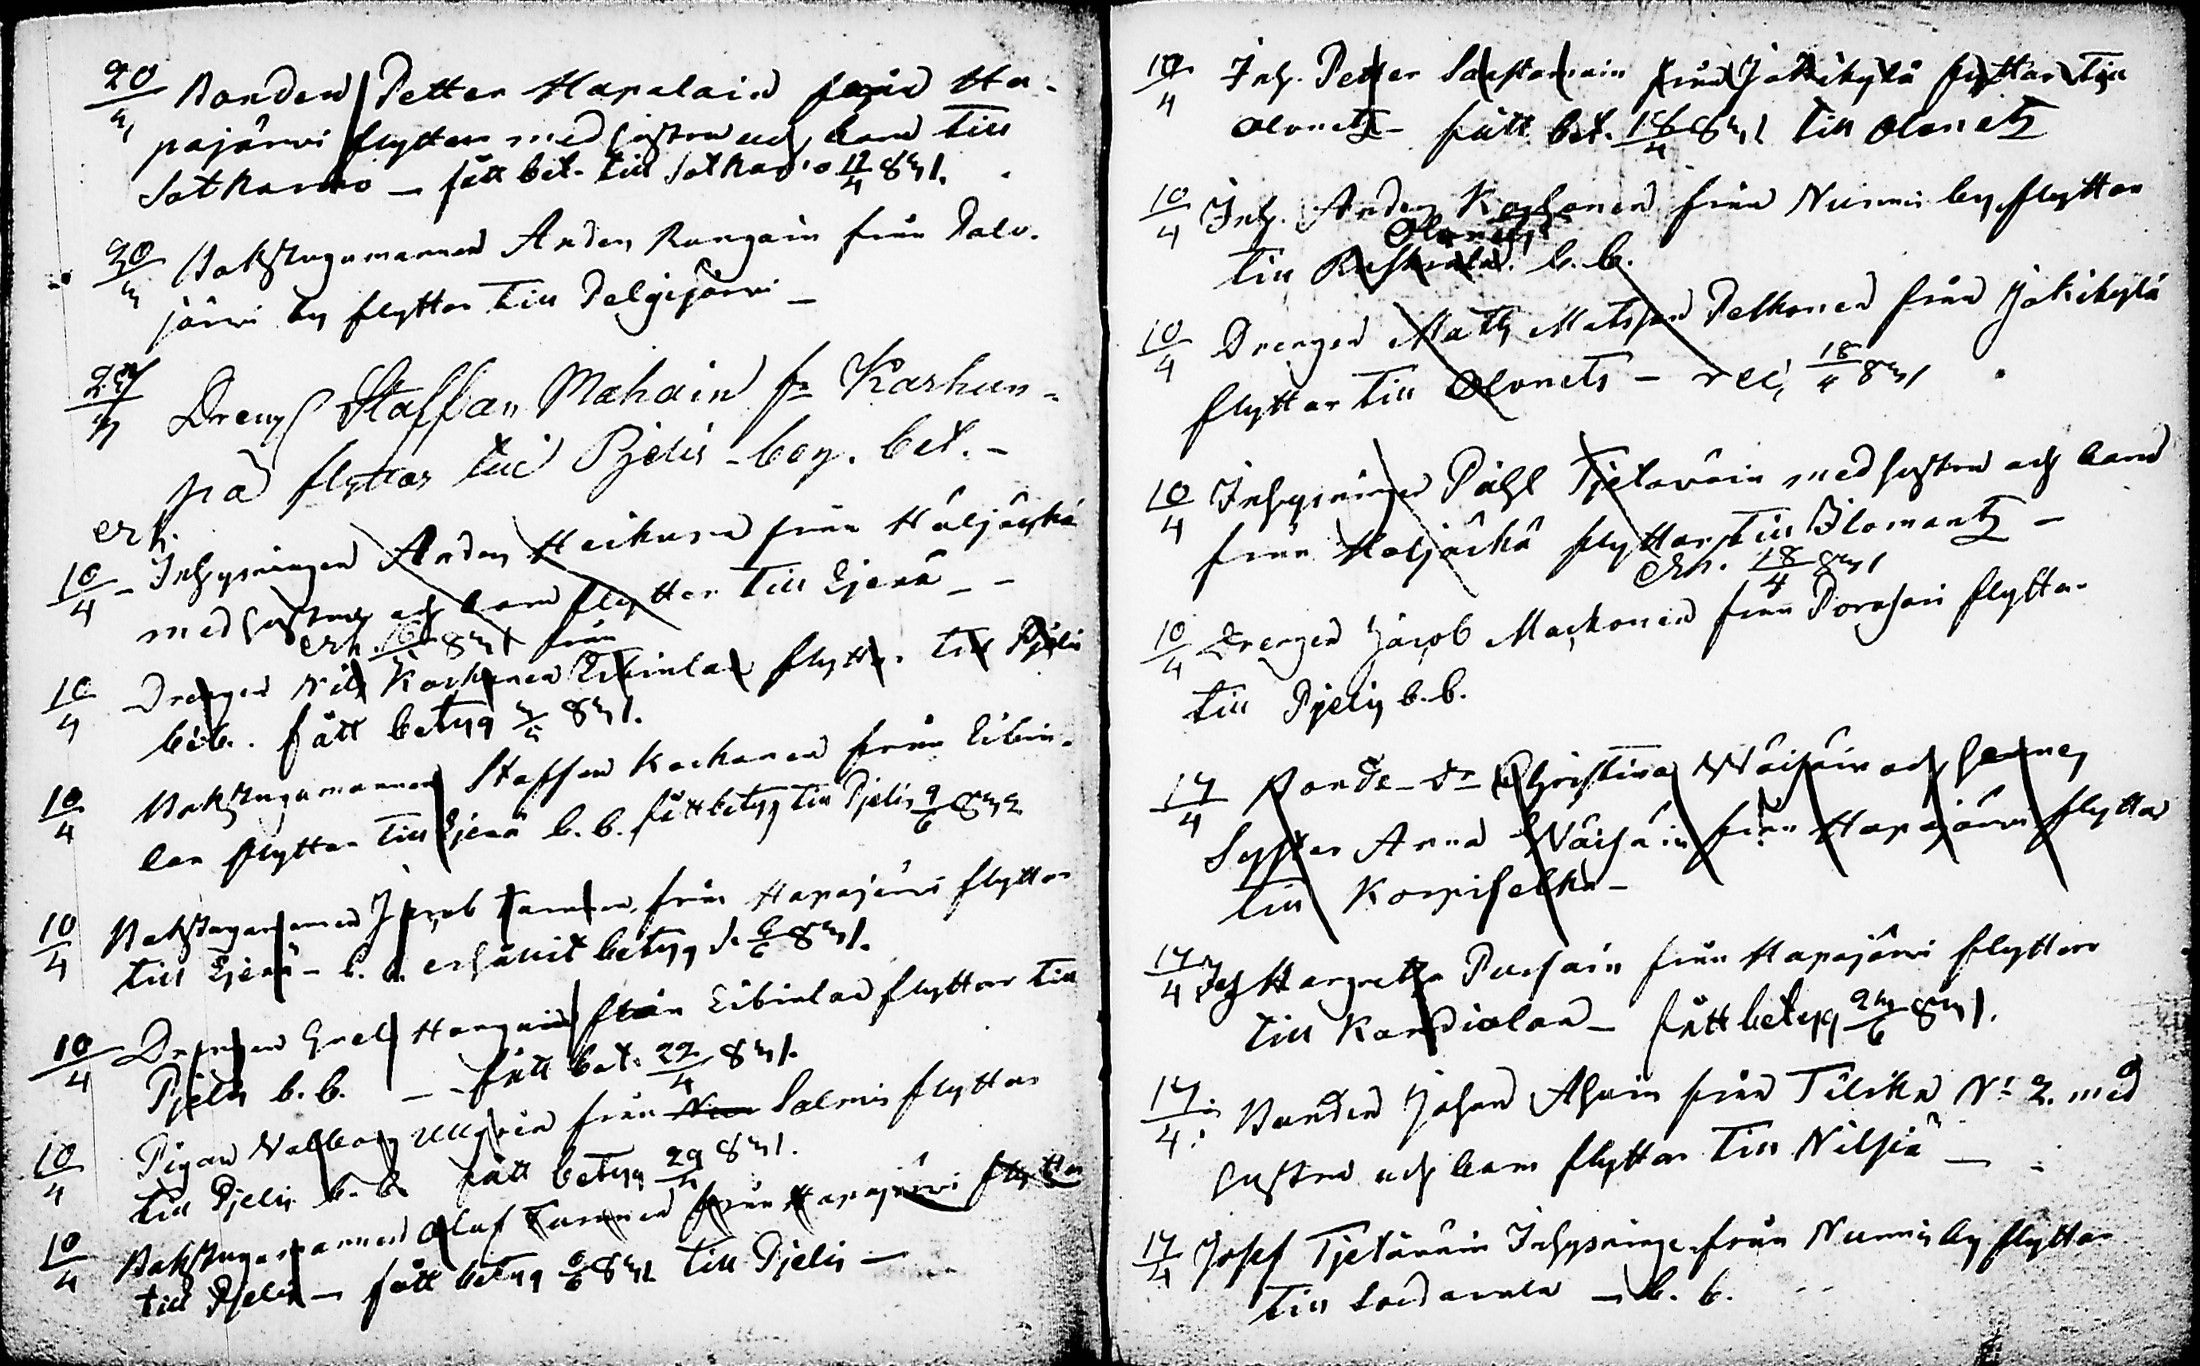 20/3 Bonden Petter Hapalain från Ha-
pajärvi flyttar med hustru och barn till
Sotkamo – fått bet. till Sotkamo 12/4 831.
30/3 Backstugumannen Anders Rungain från Palo-
järvi by flyttar till Pelgjärvi –
Dreng Staffan Mahoin fr Karhun-
pä flyttar till Pjelis – beg. bet. –
erh.
10/4 – Inhysningen Anders Heikura från Höljäckä
med hustru och barn flyttar till Ejenä – –
10/4 Drengen Nils Koskonen från Eibinlax flyttar till Pjelis
b.b. fått betyg 831.
10/4 Backstugumannen Staffan Kackonen från Eibin-
lax flyttar till Ejenä b. b. fått betyg till Pjelis 9/6 832
10/4 Backstugumannen Jacob Turunen från Hapajärvi flyttar
till Ejenä – b. b. erhållit betyg d. 6/6 831.
10/4 Drengen Grels från Eibinlax flyttar till
Pjelis b. b. – – fått bet. 22/4 831.
10/4 Pigan Valborg från Salmis flyttar
till Pjelis b. b. fått betyg 29 831.
10/4 Backstugumannen Olof Turunen från Hapajärvi flyttar
till Pjelis – fått betyg 6/6 831 till Pjelis –
10/4 Inh. Petter från Jokikylä flyttar till
Olonetz – fått bet. 18/4 831 till Olonetz
10/4 Inh. Anders från Nurmis by flyttar
Olonets
till Ruskiala b. b.
10/4 Drengen Mats Matsson Pelkonen från Jokikylä
flyttar till Olonets – 18/4 831
10/4 Inhysningen Påhl Tjeläväin med hustru och barn
från Höljäckä flyttar till Ilomantz –
erh. 18/4 831
10/4 Drengen Jacob Mackonen från Porosari flyttar
till Pjelis b. b.
17/4 Bonde-dr Christina Wäisäin och hennes
Syster Anna Wäisäin från Hapajärvi flyttar
till Korpiselkä –
17/4 Margreta Pursain från Hapajärvi flyttar
till Kardialax – fått betyg 831.
17/4 Bonden Johan Ahoin från No 2. med
hustru och barn flyttar till Nilsiä –
17/4 Josef Tjeläväin Inhysninge från Nurmis by flyttar
till Sordavala – b. b.